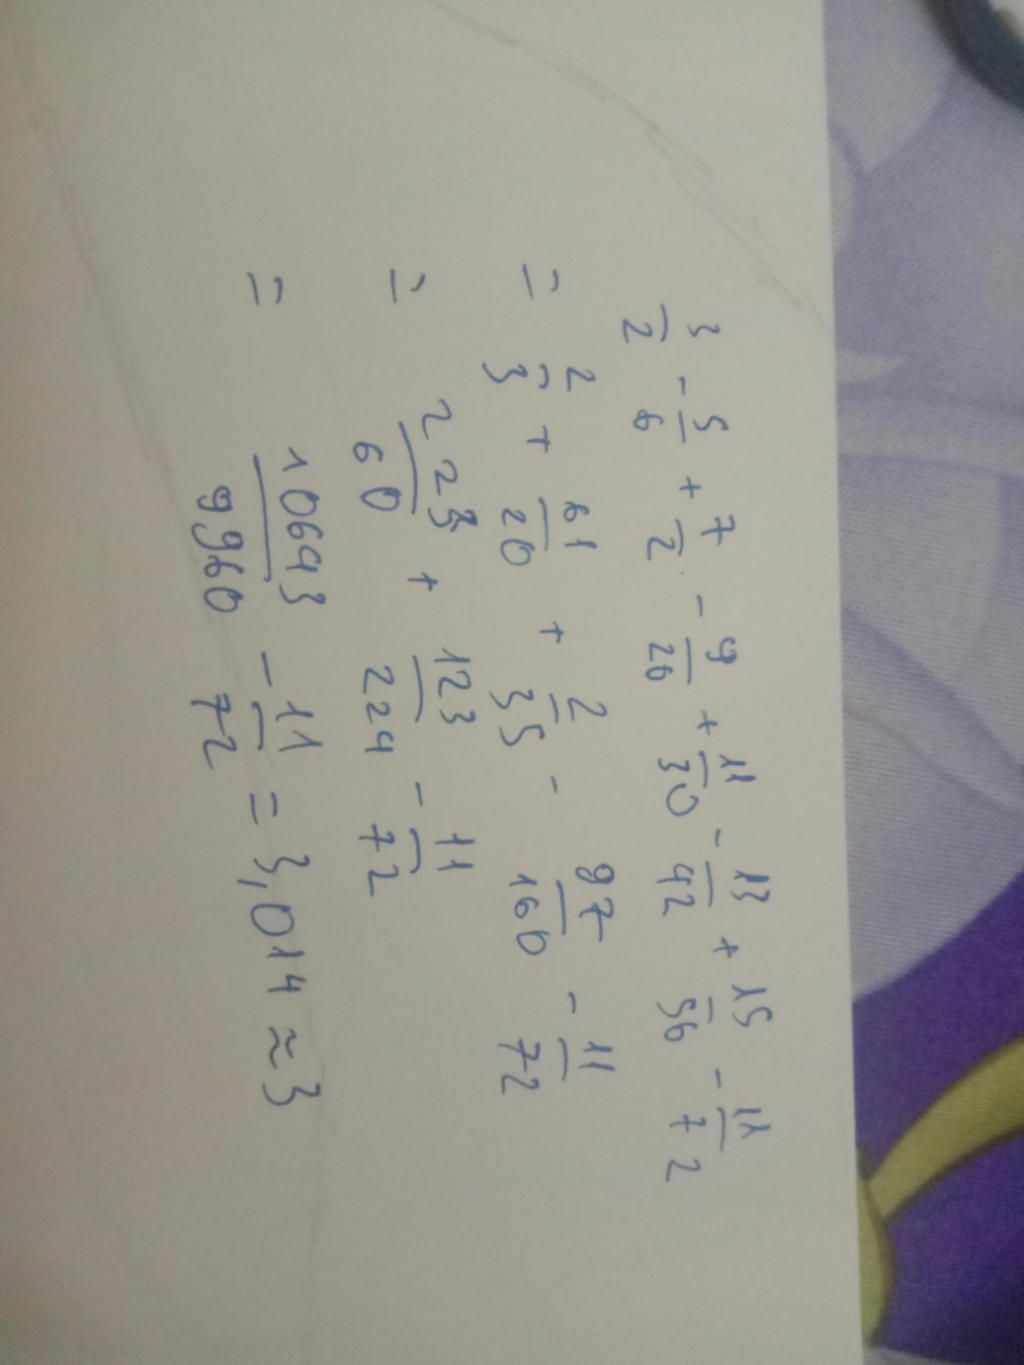 3/2 - 5/6 + 7/2 - 9/20 + 11/30 - 13/42 + 15/56 - 11/72
= 2/3 + 61/20 + 2/35 - 97/160 - 11/72
= 223/60 + 123/224 - 11/72
= 10643/9960 - 11/72 = 3,014 ≈ 3